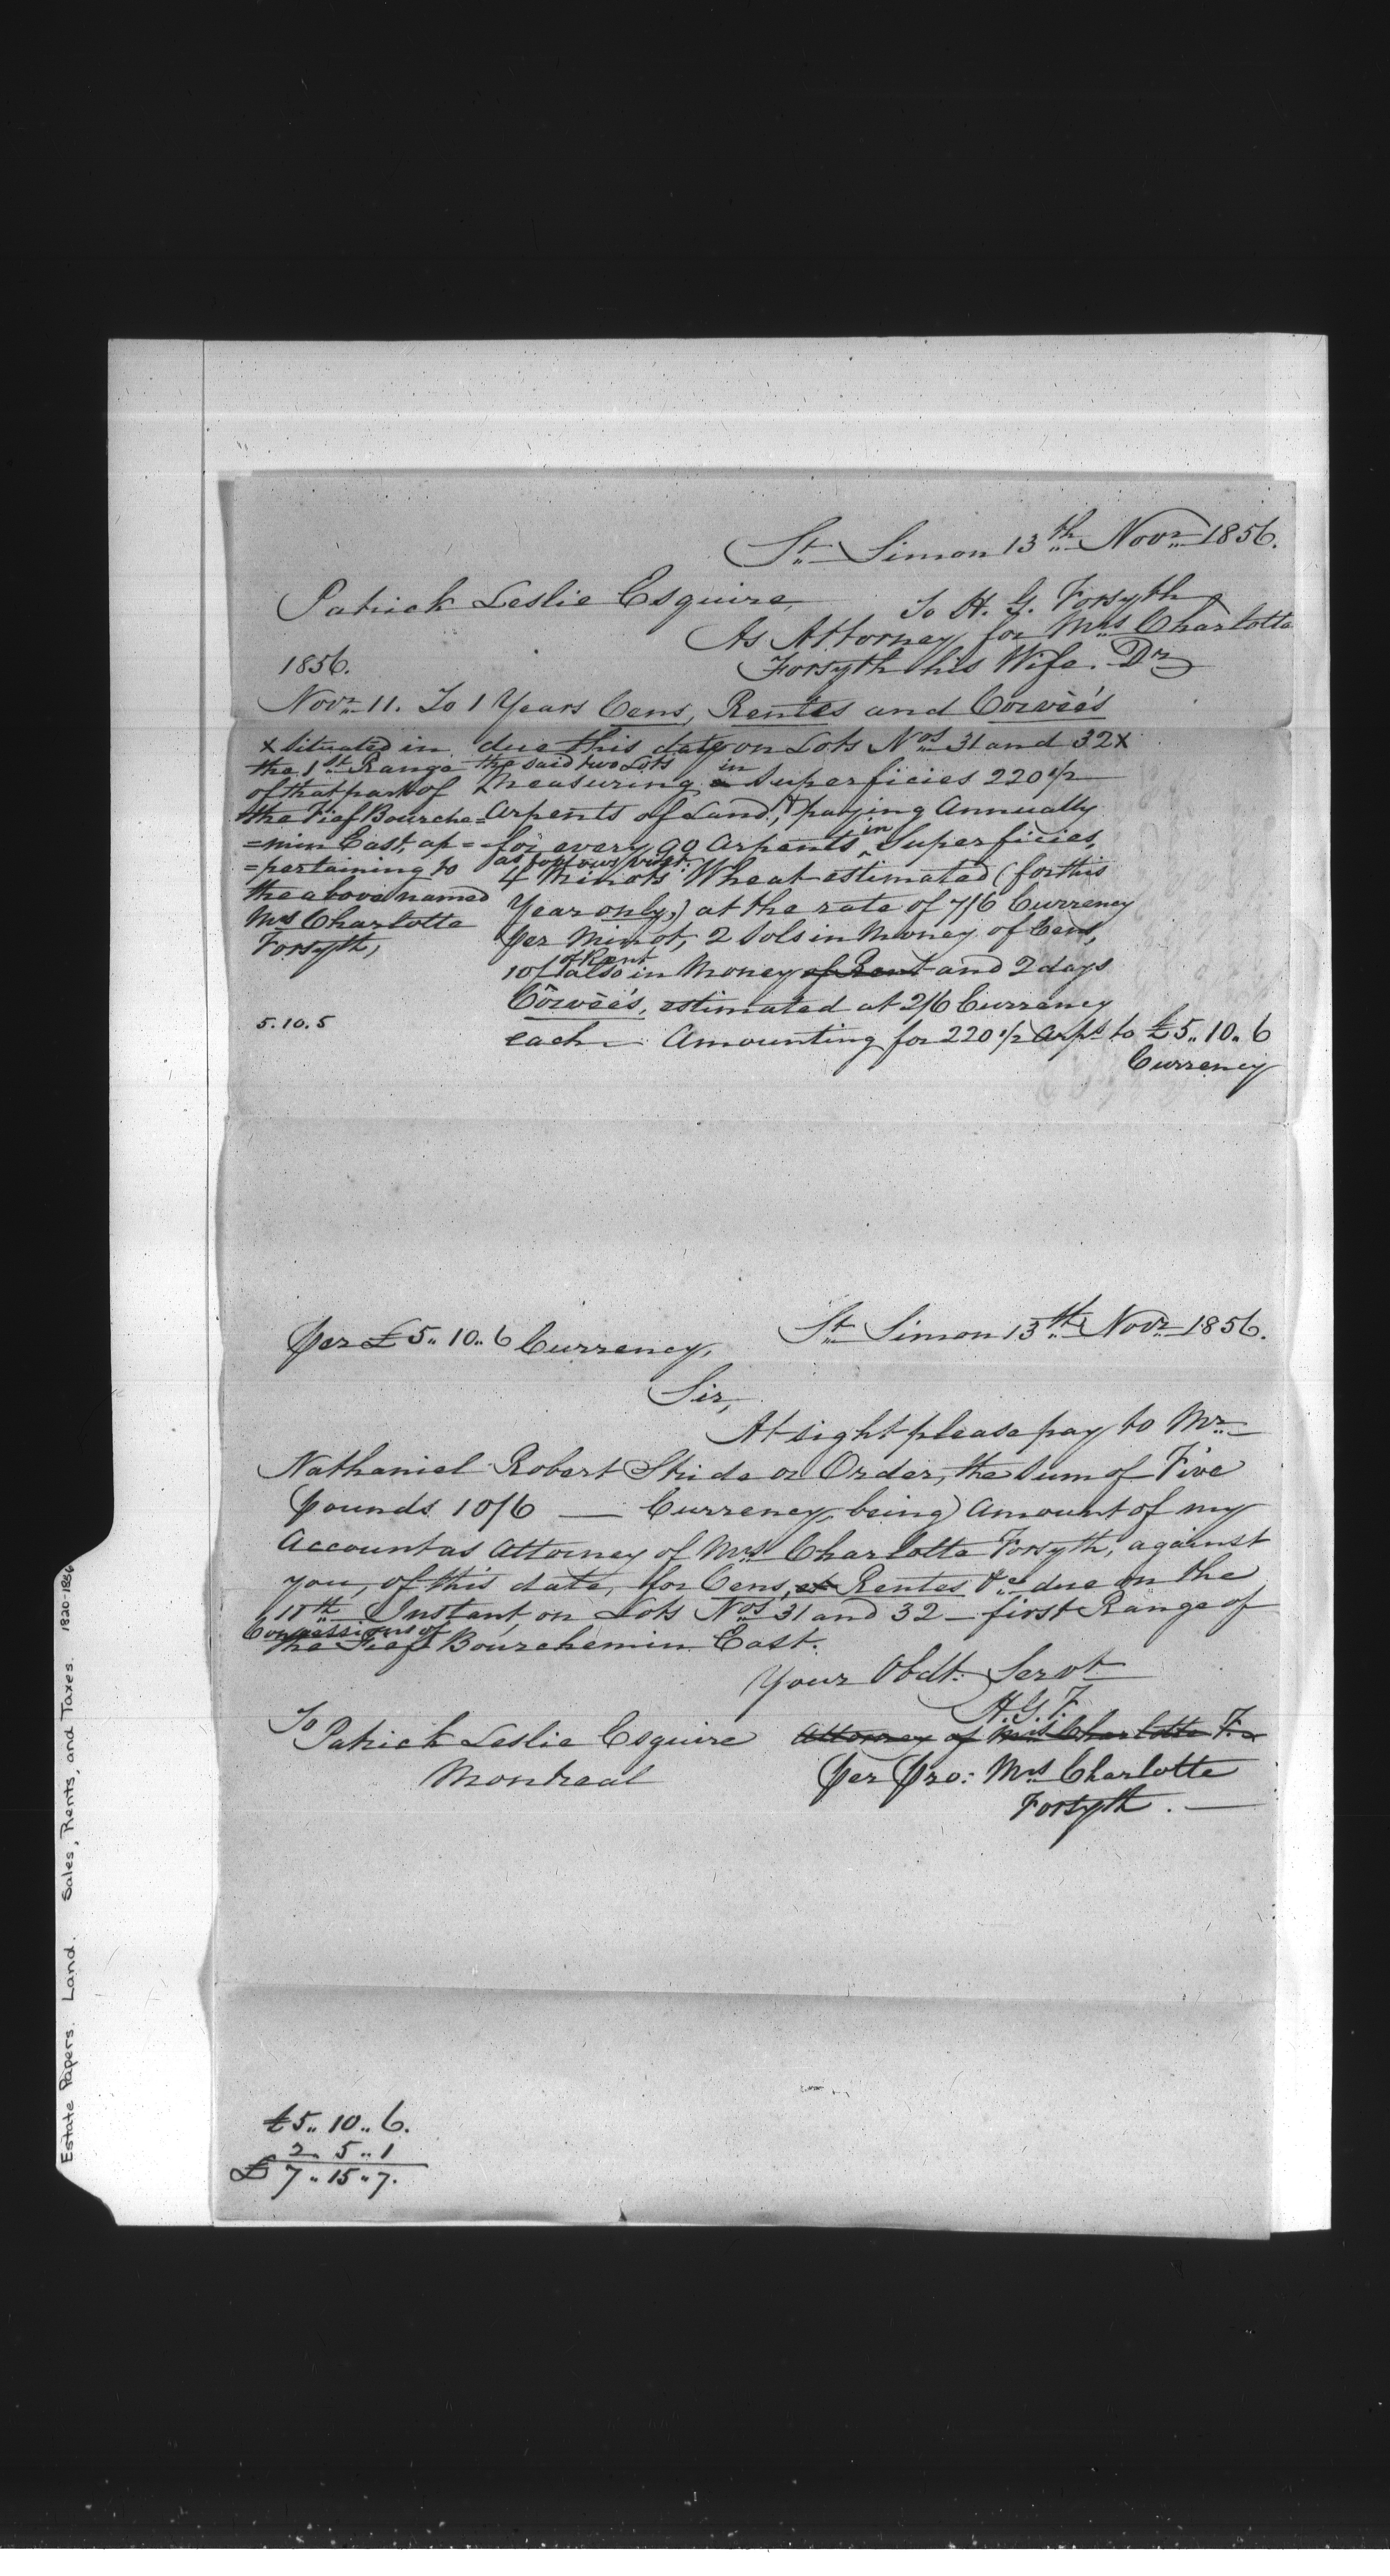 St. Simon 13th Novr. 1856.
Patrick Leslie Esquire,
To H. G. Forsyth
As Attorney for Mrs Charlotte
1856.
Forsyth his Wife. Dr
Novr. 11. To 1 Years Cens, Rentes and Corvéés
due this date on Lots Nos. 31 and 32 x
the said two Lots in
Measuring Superficies 220 1/2
Arpents of Land, & paying Annually
for every 90 Arpents in Superficies,
as follows
4 Minots Wheat estimated (for this
Year only,) at the rate of 7/6 Currency
per Minot, 2 Sols in Money of Cens,
of Rent
10/ also in Money of Rent and 2 days
Corvéés, estimated at 2/6 Currency
each — Amounting for 220 1/2 Arps. to £5.. 10.. 6
Currency
x Situated in
the 1st Range
of that part of
the Fief Bourche=
=min East, ap=
=pertaining to
the above named
Mrs Charlotte
Forsyth,
5.10.5
per £5.. 10.. 6 Currency,
St. Simon 13th Novr. 1856.
Sir,
At sight please pay to Mr.
Nathaniel Robert Stride or Order, the Sum of Five
pounds 10/6 — Currency, being Amount of my
Account as Attorney of Mrs Charlotte Forsyth, against
you, of this date, for Cens, et Rentes &c due on the
11th Instant, on Lots Nos 31 and 32 — first Range of
Concessions of
the Fief Bourchemin East.
Your Obdt. Servt.
H.G.F.
To
Patrick Leslie Esquire
Attorney of Mrs Charlotte F.
Montreal
per pro: Mrs Charlotte
Forsyth. —
£5.. 10.. 6.
2 5.. 1
£ 7.. 15.. 7.
Estate Papers. Land. Sales, Rents, and Taxes. 1820-1856